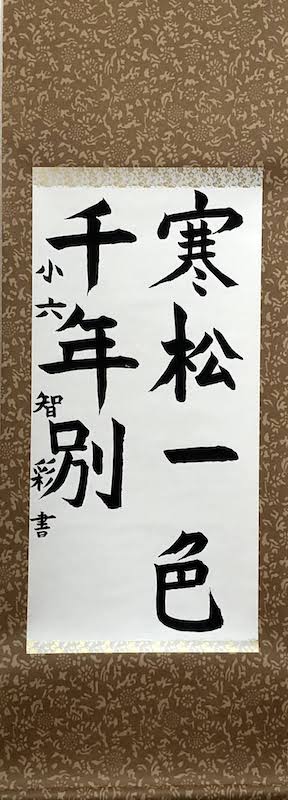 寒松一色
千年別
小六 智彩書